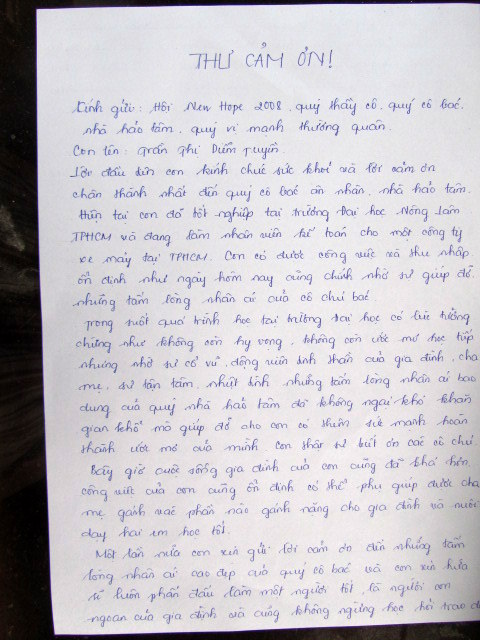 THƯ CẢM ƠN!
Kính gửi: Hội New Hope 2008, quý thầy cô, quý cô bác,
nhà hảo tâm, quý vị mạnh thường quân.
Con tên: Trần Thị Diễm Tuyền.
Lời đầu tiên con kính chúc sức khoẻ và lời cảm ơn
chân thành nhất đến quý cô bác ân nhân, nhà hảo tâm.
Hiện tại con đã tốt nghiệp tại trường Đại học Nông Lâm
TPHCM và đang làm nhân viên kế toán cho một công ty
xe máy tại TPHCM. Con có được công việc và thu nhập
ổn định như ngày hôm nay cũng chính nhờ sự giúp đỡ
những tấm lòng nhân ái của cô chú bác.
Trong suốt quá trình học tại trường đại học có lúc tưởng
chừng như không còn hy vọng, không còn ước mơ học tiếp
nhưng nhờ sự cổ vũ, động viên tinh thần của gia đình, cha
mẹ, sự tận tâm, nhiệt tình những tấm lòng nhân ái bao
dung của quý nhà hảo tâm đã không ngại khó khăn
gian khổ mà giúp đỡ cho con có thêm sức mạnh hoàn
thành ước mơ của mình. Con thật sự biết ơn các cô chú
Bây giờ cuộc sống gia đình của con cũng đã khá hơn,
công việc của con cũng ổn định có thể phụ giúp được cha
mẹ gánh vác phần nào gánh nặng cho gia đình và nuôi
dạy hai em học tốt.
Một lần nữa con xin gửi lời cảm ơn đến những tấm
lòng nhân ái cao đẹp của quý cô bác và con xin hứa
sẽ luôn phấn đấu làm một người tốt là người con
ngoan của gia đình và cũng không ngừng học hỏi trao